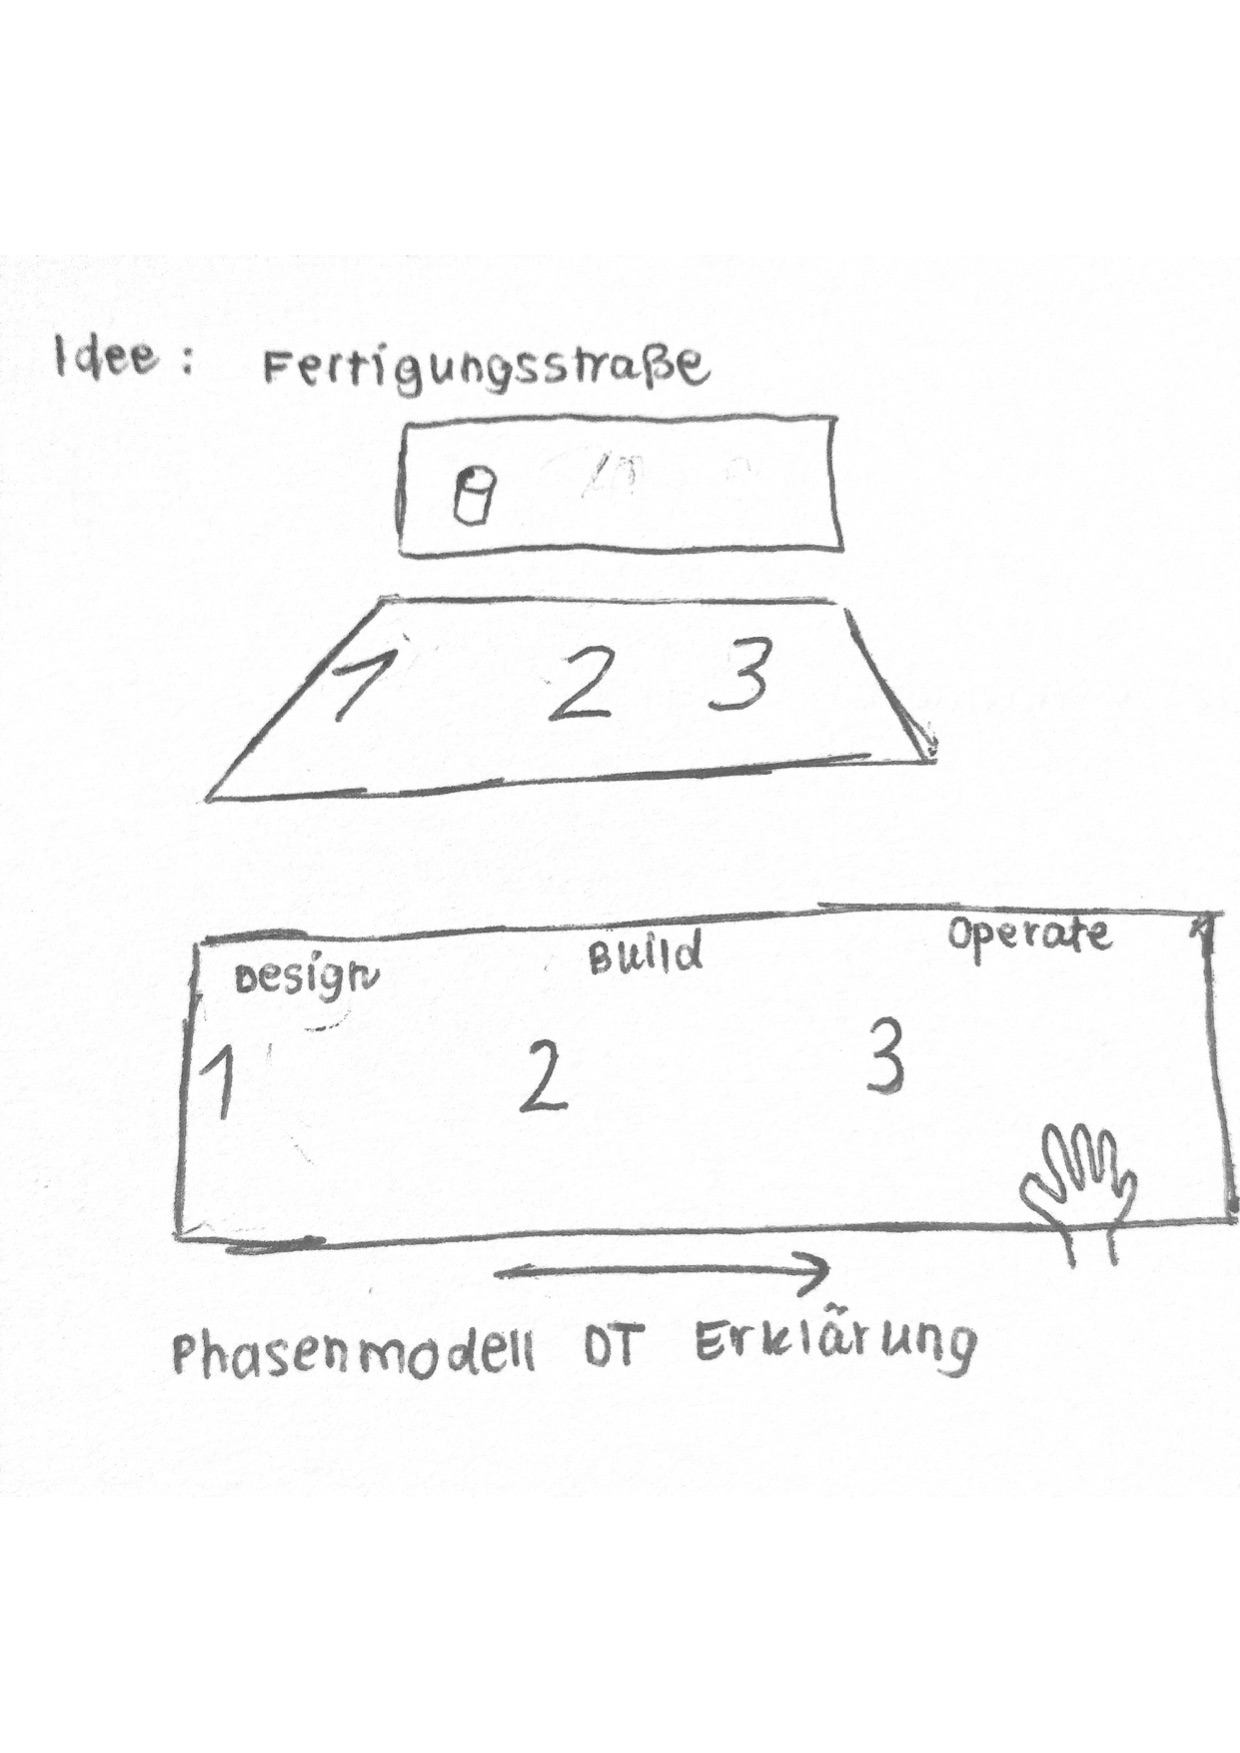 Idee: Fertigungsstraße
1 2 3
Design Build Operate
1 2 3
Phasenmodell DT Erklärung